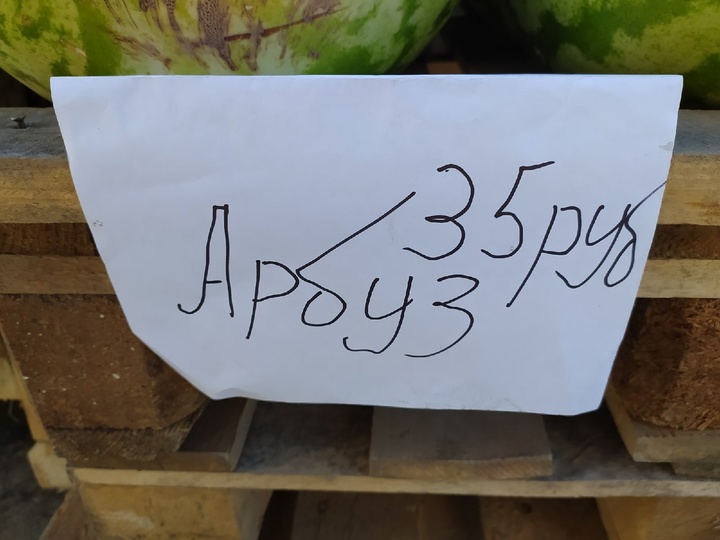 Арбуз
35 руб